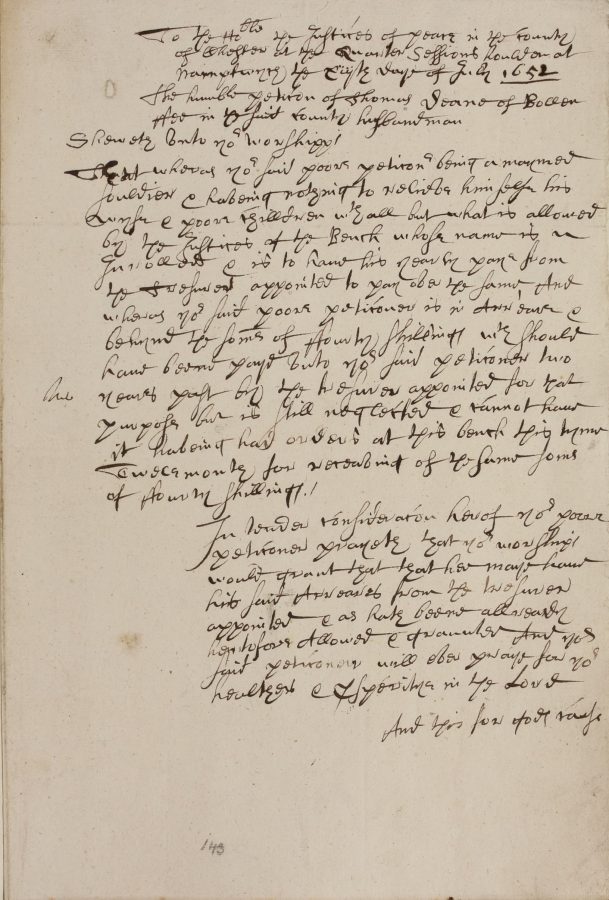 To the Hoble the Justices of peace in the County
of Chester at the Quarter Sessions houlden at
Namptwych the day of July 1652
The humble peticon of Thomas Deane of Bollen
ffee in the said County husbandman
Sheweth Unto yor worshipps
That wheras yor said poore peticonr being a maymed
souldier & haveing nothing to relieve himselfe his
wyfe & poore Children wth all but what is allowed
by the Justices of the Bench whose name is
Inrolled & is to have his yearly pay from
the Tresurer appointed to pay over the same And
wheras yor said poore peticoner is in Arreare &
behynd the some of ffourty shillings wch should
have beene payd Unto yor said peticoner two
yeares past by the tresurer appointed for that
purpose but is still neglected & cannot have
it haveing had orders at this bench this tyme
Twelemonth for receaving of the same some
of ffourty shillings./
In tender consideracon herof yor poore
peticoner prayeth that yor worshipps
would grant that that hee maye have
his said Arreares from the tresurer
appointed & as hath beene allready
heretofore Allowed & graunted And yor
said peticoner will ever praye for yor
healthes & pspéritye in the Lord
And this for gods cause
143